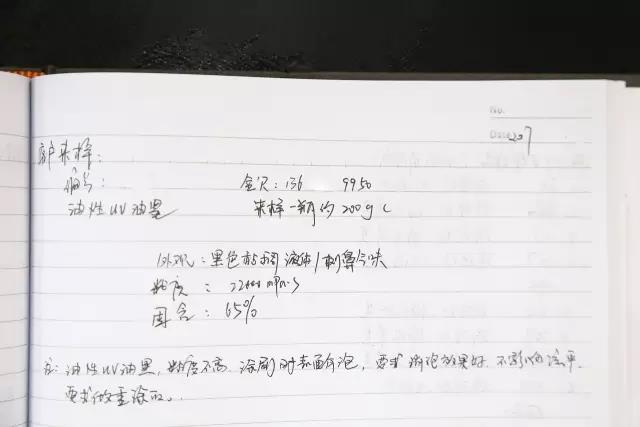 No.
Date 207
客户来样:
编号: 136 9950
油性UV油墨 来样一瓶约200g
外观:黑色粘稠液体/刺鼻气味
粘度: mpa·s
固含:65%
注:油性UV油墨,粘度不高,涂刷时表面有泡,要求消泡效果好,不影响流平
要求做重涂